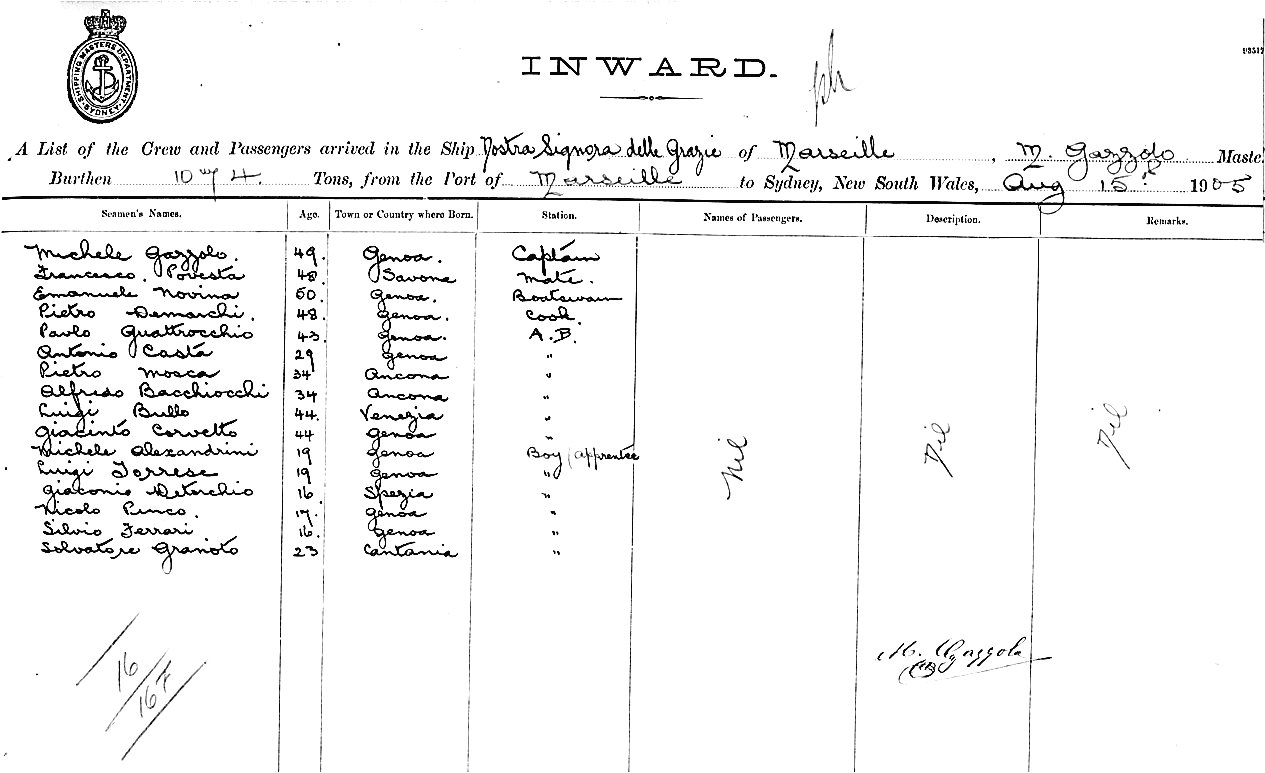 SHIPPING MASTERS DEPARTMENT SYDNEY
INWARD.
A List of the Crew and Passengers arrived in the Ship Nostra Signora delle Grazie of Marseille, M. Gazzolo Maste
Burthen Tons, from the Port of Marseille to Sydney, New South Wales, Aug 15th 1905
Seamen's Names. Age. Town or Country where Born. Station. Names of Passengers. Description. Remarks.
Michele Gazzolo. 49. Genoa. Captain
Francesco. Povesta 48 Savona Mate.
Emanuele Novina 50. Genoa. Boatswain
Pietro Demarchi. 48 Genoa. Cook.
Paolo Quattrocchio 43 Genoa. A.B.
Antonio Casta 29 Genoa "
Pietro Mosca 34 Ancona "
Alfredo Bacchiocchi 34 Ancona "
Luigi Bullo 44. Venezia "
Giacinto Corvetto 44 Genoa "
Michele Alexandrini 19 Genoa Boy (apprentce
Luigi Torrese 19 Genoa "
Giacomo 16 Spezia "
Nicolo 17. Genoa "
Silvio Ferrari 16. Genoa "
Solvatore Granoto 23 Cantania "
Nil Nil Nil
M. Gazzola
16
16 F